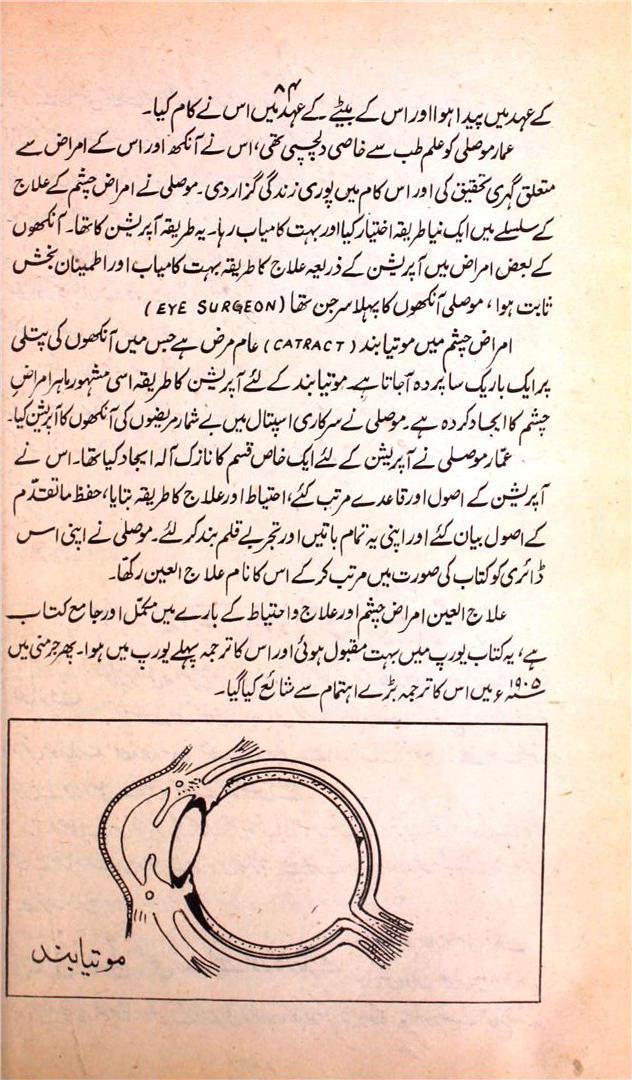 ۸۴
کے عہد میں پیدا ہوا اور اس کے بیٹے کے عہد میں اس نے کام کیا۔
عمار موصلی کو علم طب سے خاصی دلچسپی تھی، اس نے آنکھ اور اس کے امراض سے
متعلق گہری تحقیق کی اور اس کام میں پوری زندگی گزار دی۔ موصلی نے امراض چشم کے علاج
کے سلسلے میں ایک نیا طریقہ اختیار کیا اور بہت کامیاب رہا۔ یہ طریقہ آپریشن کا تھا۔ آنکھوں
کے بعض امراض میں آپریشن کے ذریعہ علاج کا طریقہ بہت کامیاب اور اطمینان بخش
ثابت ہوا، موصلی آنکھوں کا پہلا سرجن تھا (EYE SURGEON)
امراض چشم میں موتیا بند (CATRACT) عام مرض ہے جس میں آنکھوں کی پتلی
پر ایک باریک سا پردہ آجاتا ہے۔ موتیا بند کے لئے آپریشن کا طریقہ اسی مشہور ماہر امراضِ
چشم کا ایجاد کردہ ہے۔ موصلی نے سرکاری اسپتال میں بے شمار مریضوں کی آنکھوں کا آپریشن کیا۔
عمّار موصلی نے آپریشن کے لئے ایک خاص قسم کا نازک آلہ ایجاد کیا تھا۔ اس نے
آپریشن کے اصول اور قاعدے مرتب کئے، احتیاط اور علاج کا طریقہ بتایا، حفظ ماتقدّم
کے اصول بیان کئے اور اپنی یہ تمام باتیں اور تجربے قلم بند کر لئے۔ موصلی نے اپنی اس
ڈائری کو کتاب کی صورت میں مرتب کرکے اس کا نام علاج العین رکھّا۔
علاج العین امراض چشم اور علاج و احتیاط کے بارے میں مکمّل اور جامع کتاب
ہے، یہ کتاب یورپ میں بہت مقبول ہوئی اور اس کا ترجمہ پہلے یورپ میں ہوا۔ پھر جرمنی میں
۱۹۰۵ء میں اس کا ترجمہ بڑے اہتمام سے شائع کیا گیا۔
موتیا بند